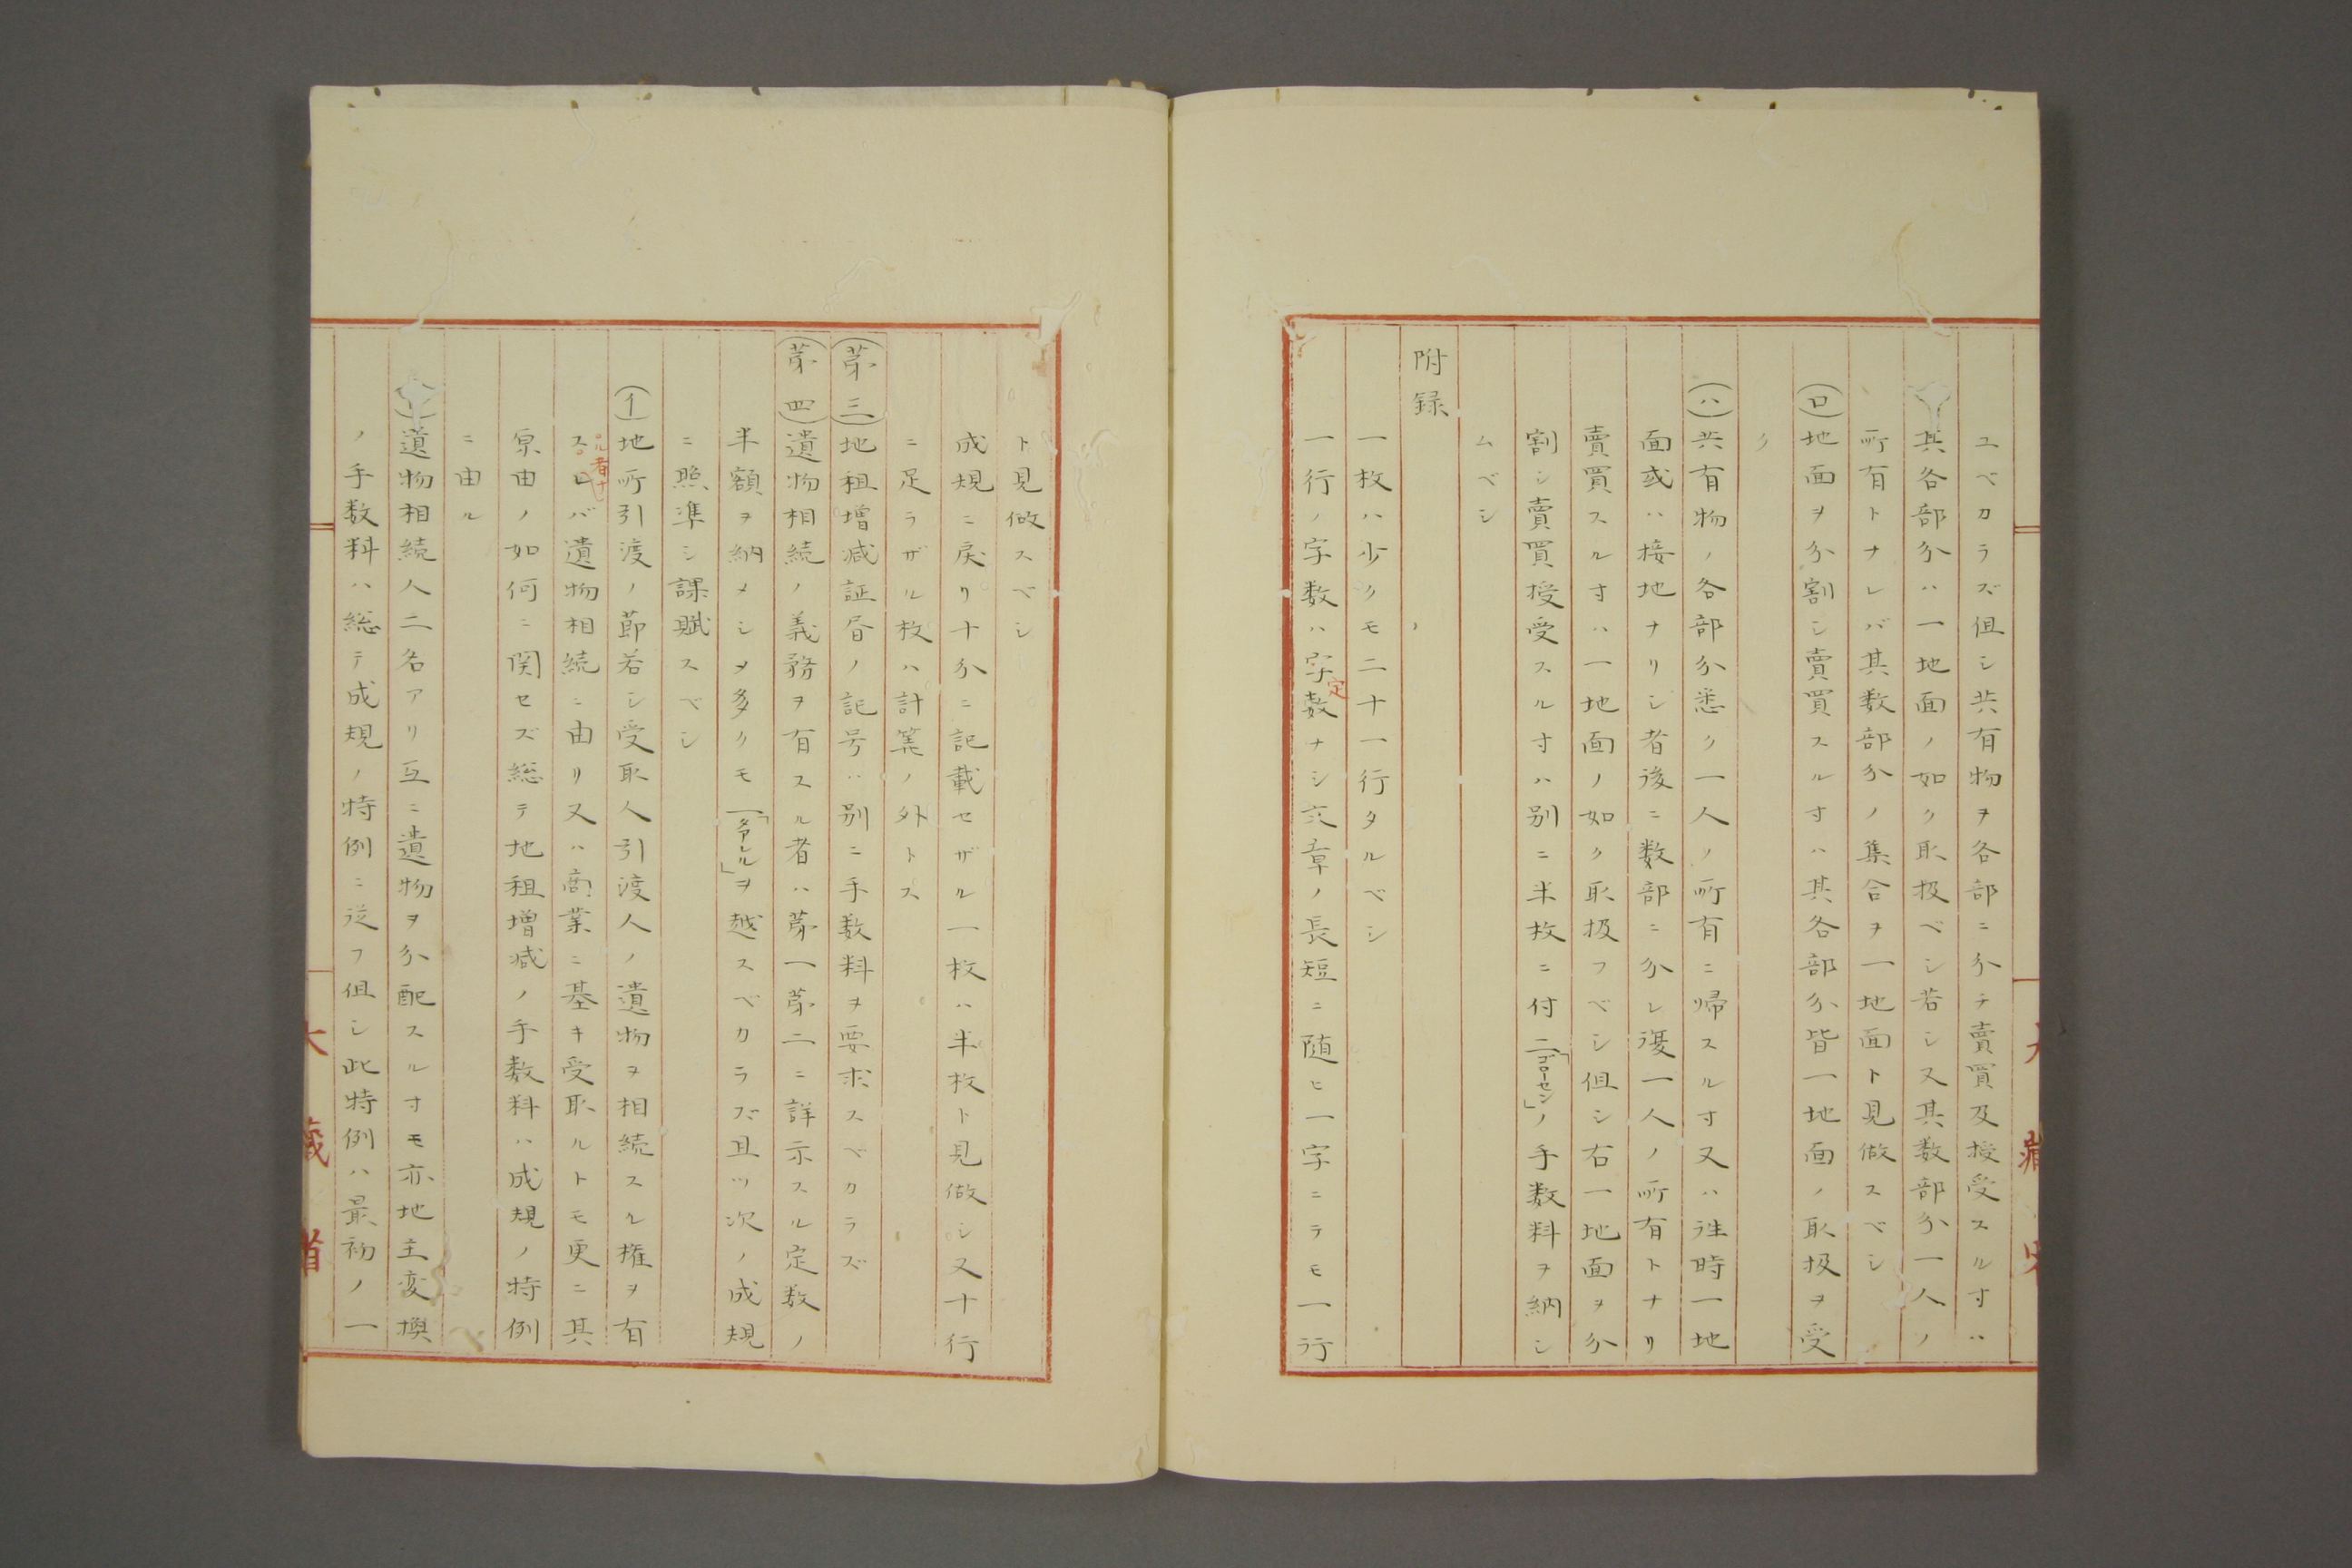 ユベカラズ但シ共有物ヲ各部ニ分チ賣買及授受スル寸ハ
其各部分ハ一地面ノ如ク取扱ベシ若シ又其数部分一人ノ
所有トナレバ其数部分ノ集合ヲ一地面ト見做スベシ
(ロ)地面ヲ分割シ賣買スル寸ハ其各部分皆一地面ノ取扱ヲ受
ク
(ハ)共有物ノ各部分悉ク一人ノ所有ニ帰スル寸又ハ往時一地
面或ハ接地ナリシ者後ニ数部ニ分レ復一人ノ所有トナリ
賣買スル寸ハ一地面ノ如ク取扱フベシ但シ右一地面ヲ分
割シ賣買授受スル寸ハ別ニ半枚ニ付二「ゴローセン」ノ手数料ヲ納シ
ムベシ
附録
一枚ハ少クモ二十一行タルベシ
一行ノ字数ハ定数ナシ文章ノ長短ニ随ヒ一字ニテモ一行
ト見做スベシ
成規ニ戻リ十分ニ記載セザル一枚ハ半枚ト見做シ又十行
ニ足ラザル枚ハ計筭ノ外トス
(第三)地租増減証書ノ記号ハ別ニ手数料ヲ要求スベカラズ
(第四)遺物相続ノ義務ヲ有スル者ハ第一第二ニ詳示スル定数ノ
半額ヲ納メシメ多クモ一「タアレル」ヲ越スベカラズ且ツ次ノ成規
ニ照準シ課賦スベシ
(イ)地所引渡ノ節若シ受取人引渡人ノ遺物ヲ相続スル権ヲ有
スル者ナレバ遺物相続ニ由リ又ハ商業ニ基キ受取ルトモ更ニ其
原由ノ如何ニ関セズ総テ地租増減ノ手数料ハ成規ノ特例
ニ由ル
遺物相続人二名アリ互ニ遺物ヲ分配スル寸モ亦地主変換
ノ手数料ハ総テ成規ノ特例ニ従フ但シ此特例ハ最初ノ一
大藏省